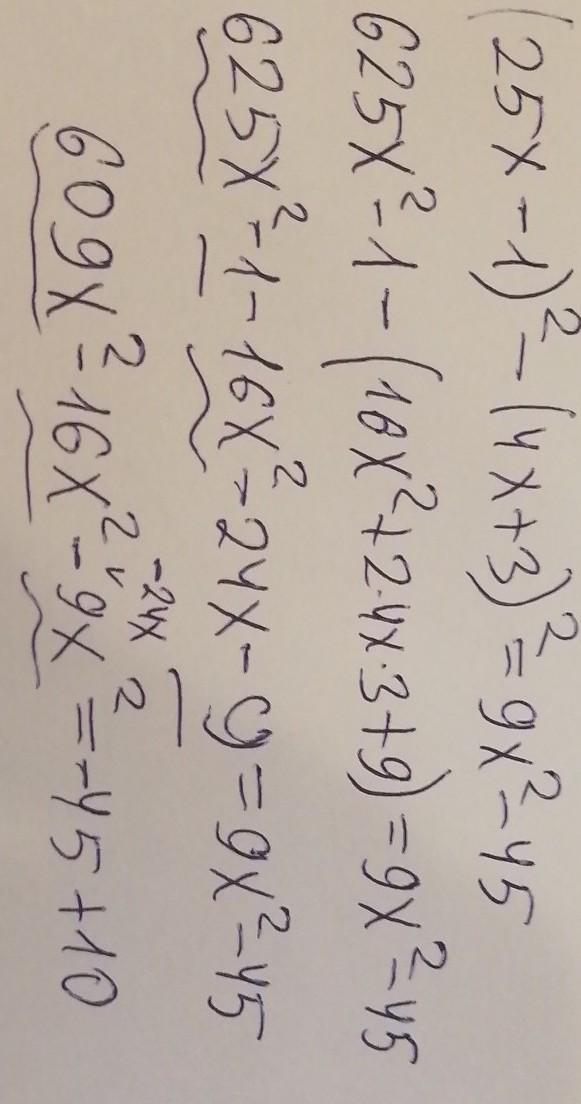 (25x-1)²-(4x+3)²=9x²-45
625x²-1-(16x²+2·4x·3+9)=9x²-45
625x²-1-16x²-24x-9=9x²-45
-24x
609x²-16x²-9x²=-45+10